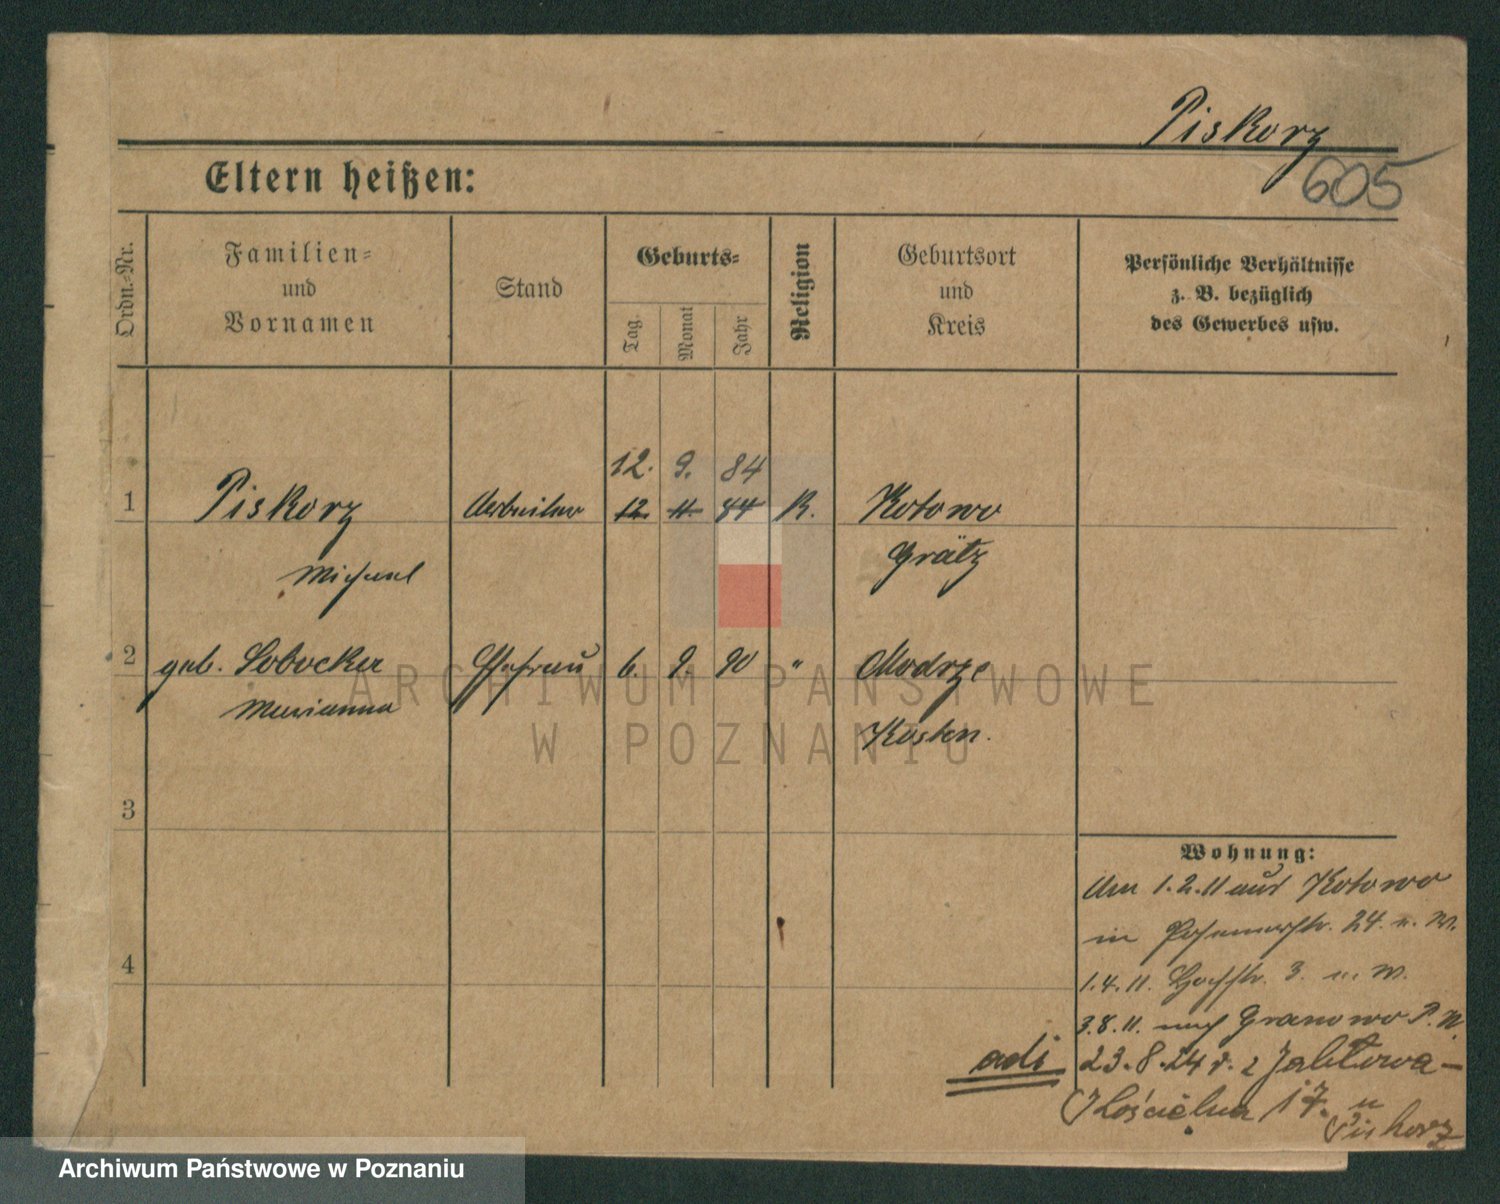 Piskorz
605
Eltern heißen:
Ordn.-Nr.
Familien-
und
Vornamen
Stand
Geburts-
Tag.
Monat
Jahr
Religion
Geburtsort
und
Kreis
Persönliche Verhältnisse
z. B. bezüglich
des Gewerbes usw.
12. 9. 84
1 Piskorz Arbeiter 12 11 84 K. Kotowo
Michael Grätz
2 geb. Sobocka Ehefrau 6. 9. 90 " Modrze
Marianna Kosten.
3
4
Wohnung:
Am 1.2.11 aus Kotowo
in Posenerstr. 24. u. W.
1.4.11. Hochstr. 3. u. W.
3.8.11. nach Granowo P. W
adi 23.8.24 z Jabłowa-
Kościelna 17. u
Piskorz
ARCHIWUM PAŃSTWOWE
W POZNANIU
Archiwum Państwowe w Poznaniu